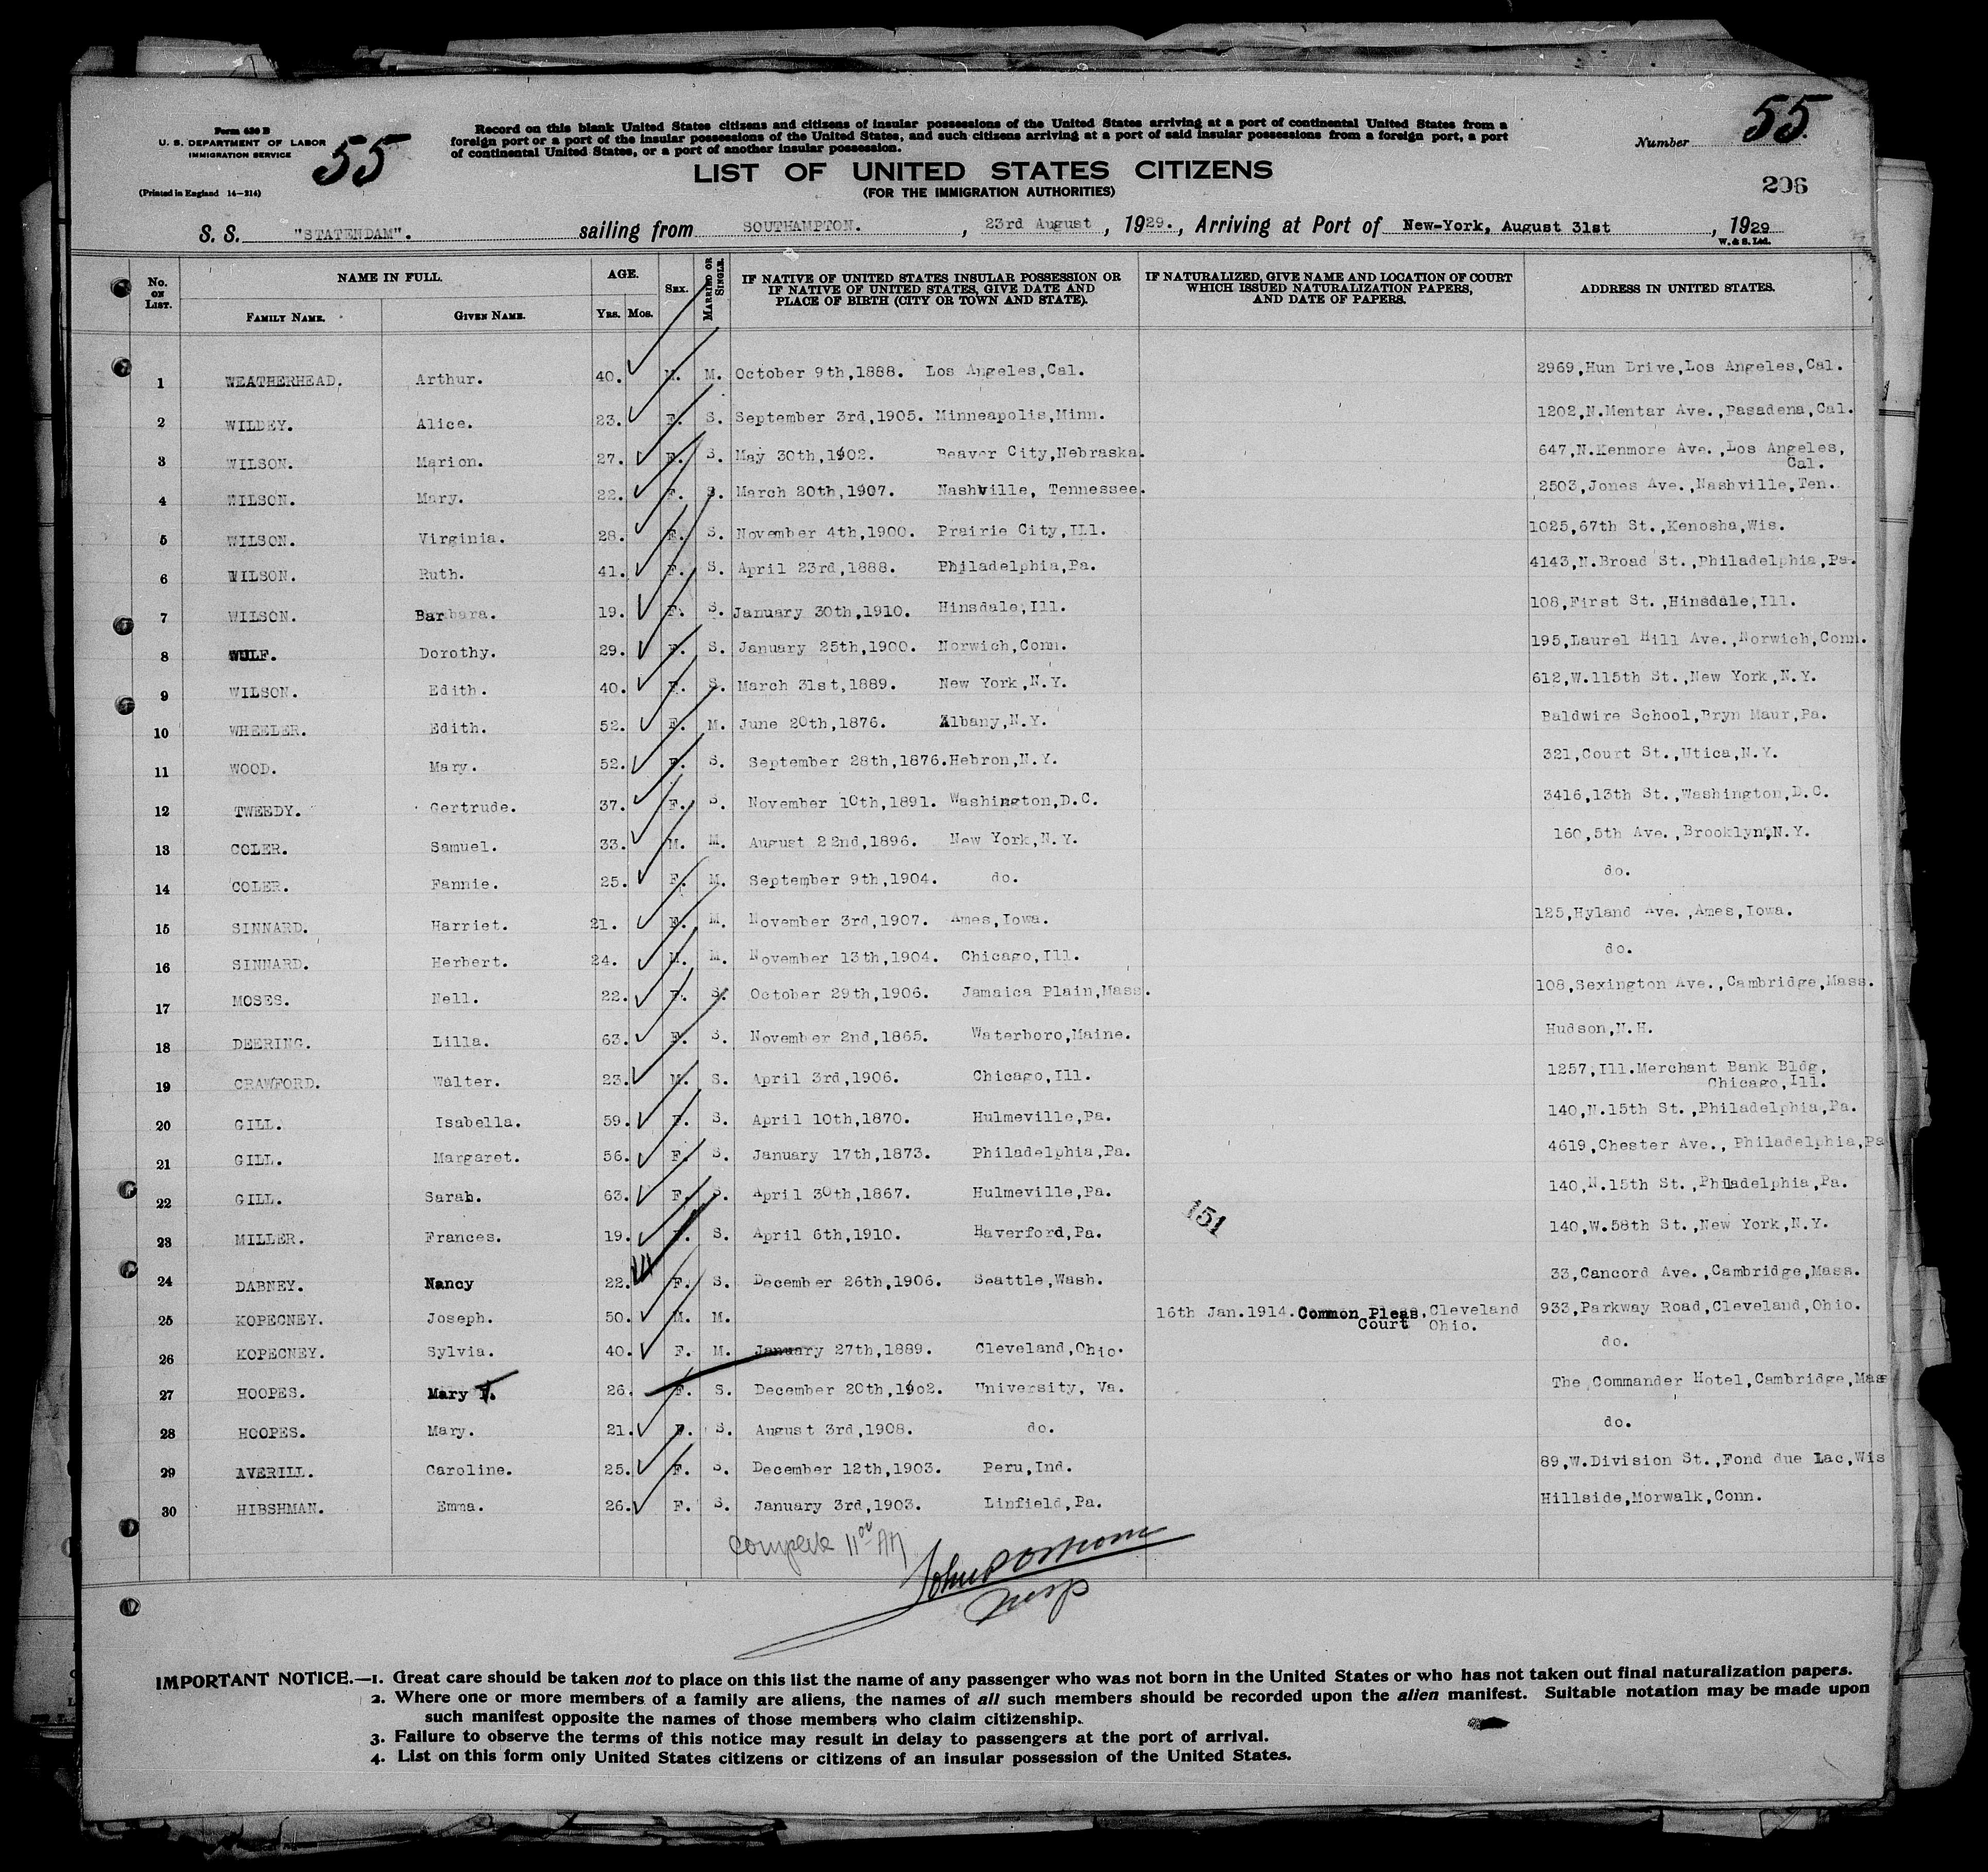 Form 630 B
U. S. DEPARTMENT OF LABOR
IMMIGRATION SERVICE
(Printed in England 14—214)
55
Record on this blank United States citizens and citizens of insular possessions of the United States arriving at a port of continental United States from a
foreign port or a port of the insular possessions of the United States, and such citizens arriving at a port of said insular possessions from a foreign port, a port
of continental United States, or a port of another insular possession.
Number 55
LIST OF UNITED STATES CITIZENS
(FOR THE IMMIGRATION AUTHORITIES)
206
S. S. "STATENDAM". sailing from SOUTHAMPTON. , 23rd August , 1929. , Arriving at Port of New-York, August 31st , 1929
W. & S. Ltd.
No. ON LIST. NAME IN FULL. FAMILY NAME. GIVEN NAME. AGE. YRS. MOS. SEX. MARRIED OR SINGLE. IF NATIVE OF UNITED STATES INSULAR POSSESSION OR IF NATIVE OF UNITED STATES, GIVE DATE AND PLACE OF BIRTH (CITY OR TOWN AND STATE). IF NATURALIZED, GIVE NAME AND LOCATION OF COURT WHICH ISSUED NATURALIZATION PAPERS, AND DATE OF PAPERS. ADDRESS IN UNITED STATES.
1 WEATHERHEAD. Arthur. 40. M. M. October 9th,1888. Los Angeles,Cal. 2969,Hun Drive,Los Angeles,Cal.
2 WILDEY. Alice. 23. F. S. September 3rd,1905. Minneapolis,Minn. 1202,N.Mentar Ave.,Pasadena,Cal.
3 WILSON. Marion. 27. F. S. May 30th,1902. Beaver City,Nebraska. 647,N.Kenmore Ave.,Los Angeles,
Cal.
4 WILSON. Mary. 22. F. S. March 20th,1907. Nashville, Tennessee. 2503,Jones Ave.,Nashville,Ten.
5 WILSON. Virginia. 28. F. S. November 4th,1900. Prairie City,Ill. 1025,67th St.,Kenosha,Wis.
6 WILSON. Ruth. 41. F. S. April 23rd,1888. Philadelphia,Pa. 4143,N.Broad St.,Philadelphia,Pa.
7 WILSON. Barbara. 19. F. S. January 30th,1910. Hinsdale,Ill. 108,First St.,Hinsdale,Ill.
8 WULF. Dorothy. 29. F. S. January 25th,1900. Norwich,Conn. 195,Laurel Hill Ave.,Norwich,Conn.
9 WILSON. Edith. 40. F. S. March 31st,1889. New York,N.Y. 612,W.115th St.,New York,N.Y.
10 WHEELER. Edith. 52. F. M. June 20th,1876. Albany,N.Y. Baldwire School,Bryn Maur,Pa.
11 WOOD. Mary. 52. F. S. September 28th,1876.Hebron,N.Y. 321,Court St.,Utica,N.Y.
12 TWEEDY. Gertrude. 37. F. S. November 10th,1891. Washington,D.C. 3416,13th St.,Washington,D.C.
13 COLER. Samuel. 33. M. M. August 22nd,1896. New York,N.Y. 160,5th Ave.,Brooklyn,N.Y.
14 COLER. Fannie. 25. F. M. September 9th,1904. do. do.
15 SINNARD. Harriet. 21. F. M. November 3rd,1907. Ames,Iowa. 125,Hyland Ave.,Ames,Iowa.
16 SINNARD. Herbert. 24. M. M. November 13th,1904. Chicago,Ill. do.
17 MOSES. Nell. 22. F. S. October 29th,1906. Jamaica Plain,Mass. 108,Sexington Ave.,Cambridge,Mass.
18 DEERING. Lilla. 63. F. S. November 2nd,1865. Waterboro,Maine. Hudson,N.H.
19 CRAWFORD. Walter. 23. M. S. April 3rd,1906. Chicago,Ill. 1257,Ill.Merchant Bank Bldg,
Chicago,Ill.
20 GILL. Isabella. 59. F. S. April 10th,1870. Hulmeville,Pa. 140,N.15th St.,Philadelphia,Pa.
21 GILL. Margaret. 56. F. S. January 17th,1873. Philadelphia,Pa. 4619,Chester Ave., Philadelphia,Pa
22 GILL. Sarah. 63. F. S. April 30th,1867. Hulmeville,Pa. 140,N.15th St.,Philadelphia,Pa.
151
23 MILLER. Frances. 19. F. S. April 6th,1910. Haverford,Pa. 140,W.58th St.,New York,N.Y.
24 DABNEY. Nancy 22. F. S. December 26th,1906. Seattle,Wash. 33,Cancord Ave.,Cambridge,Mass.
25 KOPECNEY. Joseph. 50. M. M. 16th Jan.1914.Common Pleas,Cleveland 933,Parkway Road,Cleveland,Ohio.
Court Ohio.
26 KOPECNEY. Sylvia. 40. F. M. January 27th,1889. Cleveland,Ohio. do.
27 HOOPES. Mary F. 26. F. S. December 20th,1902. University, Va. The Commander Hotel,Cambridge,Mass
28 HOOPES. Mary. 21. F. S. August 3rd,1908. do. do.
29 AVERILL. Caroline. 25. F. S. December 12th,1903. Peru,Ind. 89,W.Division St.,Fond due Lac,Wis
30 HIBSHMAN. Emma. 26. F. S. January 3rd,1903. Linfield,Pa. Hillside,Morwalk,Conn.
Complete 11 00 AM
Insp
IMPORTANT NOTICE.—1. Great care should be taken not to place on this list the name of any passenger who was not born in the United States or who has not taken out final naturalization papers.
2. Where one or more members of a family are aliens, the names of all such members should be recorded upon the alien manifest. Suitable notation may be made upon
such manifest opposite the names of those members who claim citizenship.
3. Failure to observe the terms of this notice may result in delay to passengers at the port of arrival.
4. List on this form only United States citizens or citizens of an insular possession of the United States.